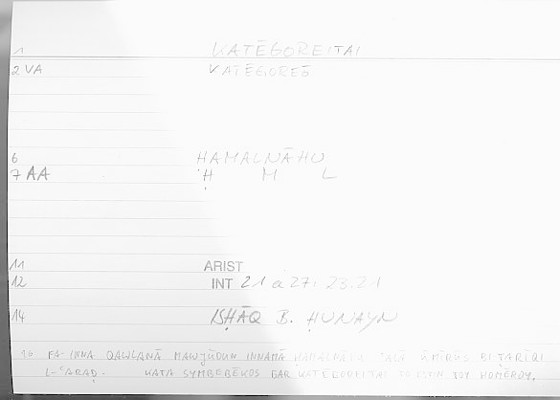 1 KATĒGOREITAI
2 VA KATĒGOREŌ
6 HAMALNĀHU
7 AA Ḥ M L
11 ARIST
12 INT 21 a 27; 23.21
14 ISḤĀQ B. ḤUNAYN
16 FA-INNA QAWLANĀ MAWJŪDUN INNAMĀ ḤAMALNĀHU ʿALĀ ŪMĪRUS BI ṬARĪQI
L-ʿARAḌ. KATA SYMBEBĒKOS GAR KATĒGOREITAI TO ESTIN TOY HOMĒROY.